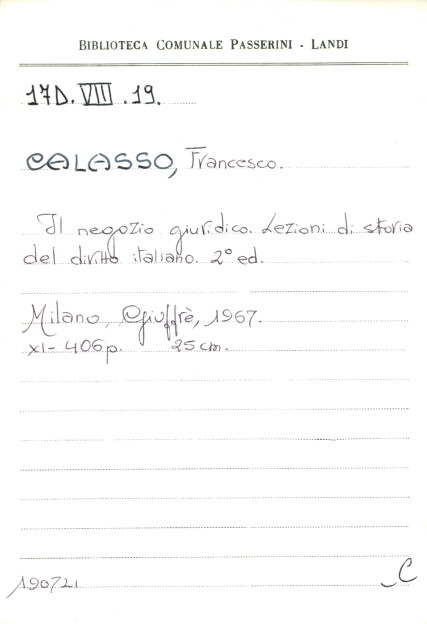 BIBLIOTECA COMUNALE PASSERINI - LANDI
17D. VIII .19.
CALASSO, Francesco.
Il negozio giuridico. Lezioni di storia
del diritto italiano. 2° ed.
Milano, Giuffrè, 1967.
XI- 406 p. 25 cm.
190721
C